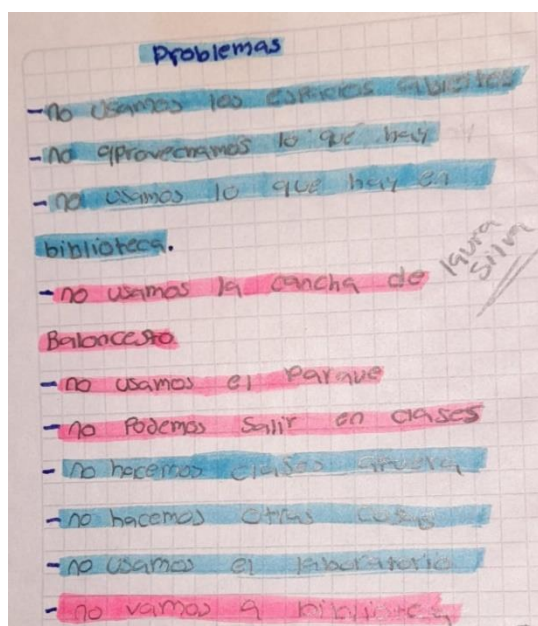 Problemas
- no usamos los espacios abiertos
- no aprovechamos lo que hay
- no usamos lo que hay en
biblioteca.
- no usamos la cancha de
Baloncesto
laura
silva
- no usamos el Parque
- no Podemos Salir en clases
- no hacemos clases afuera
- no hacemos otras cosas
- no usamos el laboratorio
- no vamos a biblioteca